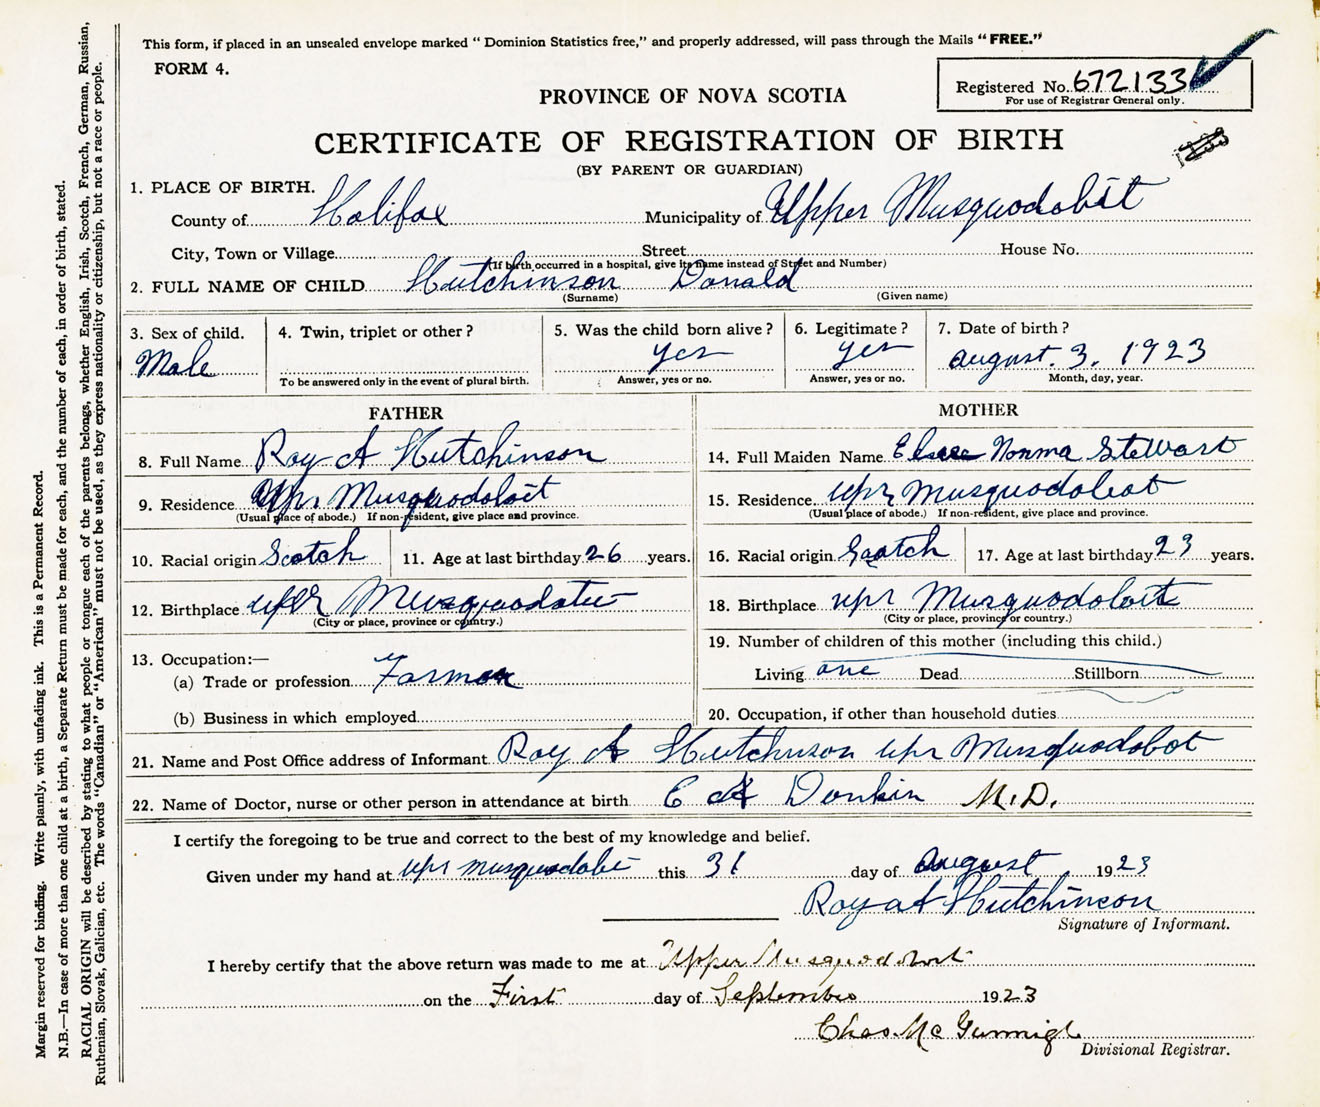 This form, if placed in an unsealed envelope marked “ Dominion Statistics free,” and properly addressed, will pass through the Mails “ FREE.”
FORM 4.
Registered No. 672133
For use of Registrar General only.
PROVINCE OF NOVA SCOTIA
CERTIFICATE OF REGISTRATION OF BIRTH
(BY PARENT OR GUARDIAN)
1. PLACE OF BIRTH.
County of Halifax Municipality of Upper Musquodobit
City, Town or Village Street House No.
(If birth occurred in a hospital, give its name instead of Street and Number)
2. FULL NAME OF CHILD Hutchinson Donald
(Surname) (Given name)
3. Sex of child. 4. Twin, triplet or other ? 5. Was the child born alive ? 6. Legitimate ? 7. Date of birth ?
Male yes yes august. 3. 1923
To be answered only in the event of plural birth. Answer, yes or no. Answer, yes or no. Month, day, year.
FATHER MOTHER
8. Full Name Roy A Hutchinson 14. Full Maiden Name Norma Stewart
9. Residence Upr. Musquodoboit 15. Residence upr Musquodoboit
(Usual place of abode.) If non-resident, give place and province. (Usual place of abode.) If non-resident, give place and province.
10. Racial origin Scotch 11. Age at last birthday 26 years. 16. Racial origin Scotch 17. Age at last birthday 23 years.
12. Birthplace upr 18. Birthplace upr Musquodoboit
(City or place, province or country.) (City or place, province or country.)
19. Number of children of this mother (including this child.)
13. Occupation:—
Living one Dead Stillborn
(a) Trade or profession Farmer
(b) Business in which employed 20. Occupation, if other than household duties
21. Name and Post Office address of Informant Roy A Hutchinson upr Musquodobot
22. Name of Doctor, nurse or other person in attendance at birth E A Donkin M.D.
I certify the foregoing to be true and correct to the best of my knowledge and belief.
Given under my hand at upr this 31 day of August 1923
Roy A Hutchinson
Signature of Informant.
I hereby certify that the above return was made to me at Upper
on the First day of September 1923
Chas. Mc
Divisional Registrar.
Margin reserved for binding. Write plainly, with unfading ink. This is a Permanent Record.
N.B.—In case of more than one child at a birth, a Separate Return must be made for each, and the number of each, in order of birth, stated.
RACIAL ORIGIN will be described by stating to what people or tongue each of the parents belongs, whether English, Irish, Scotch, French, German, Russian,
Ruthenian, Slovak, Galician, etc. The words “Canadian” or “American” must not be used, as they express nationality or citizenship, but not a race or people.